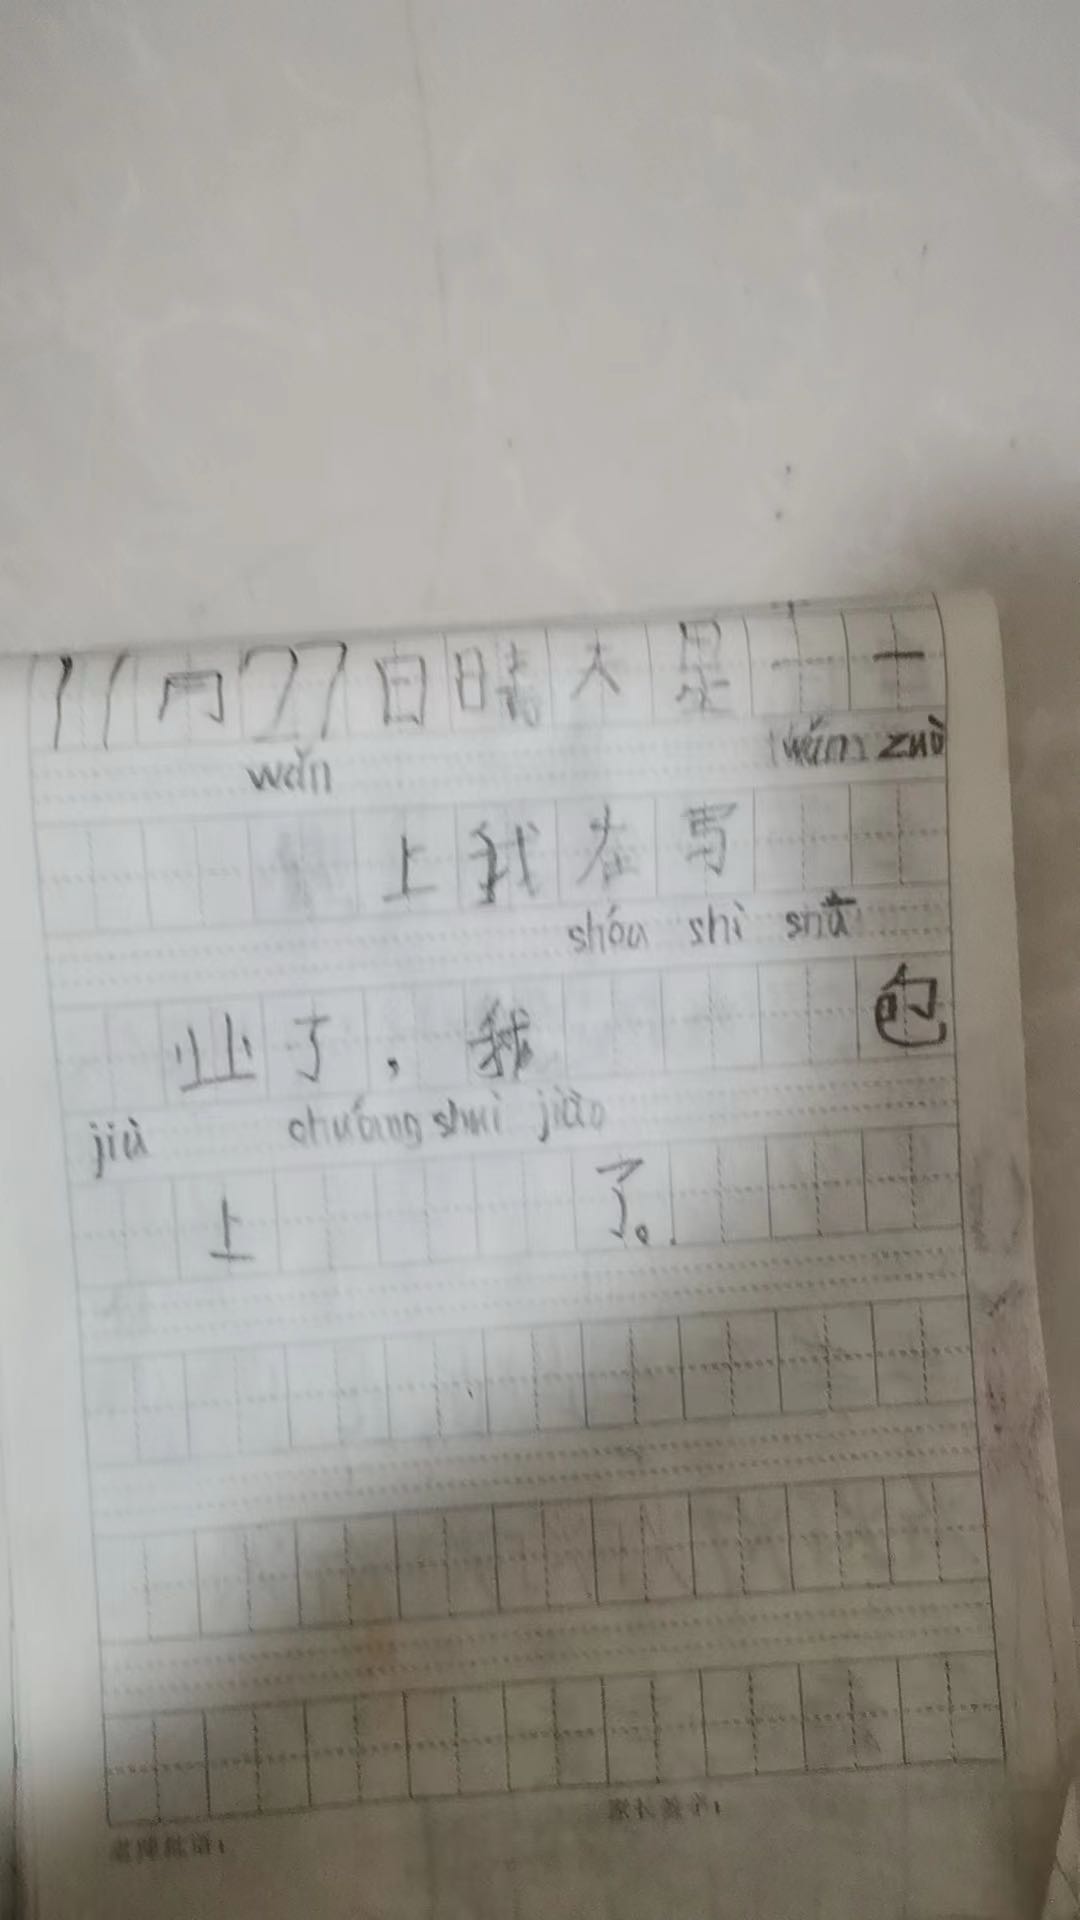 11月27日晴天星
wǎn wǎn zuò
上我在写
shóu shì
业了，我 的
jiù chuáng shuì jiào
上 了。
老师批语：
家长签字：